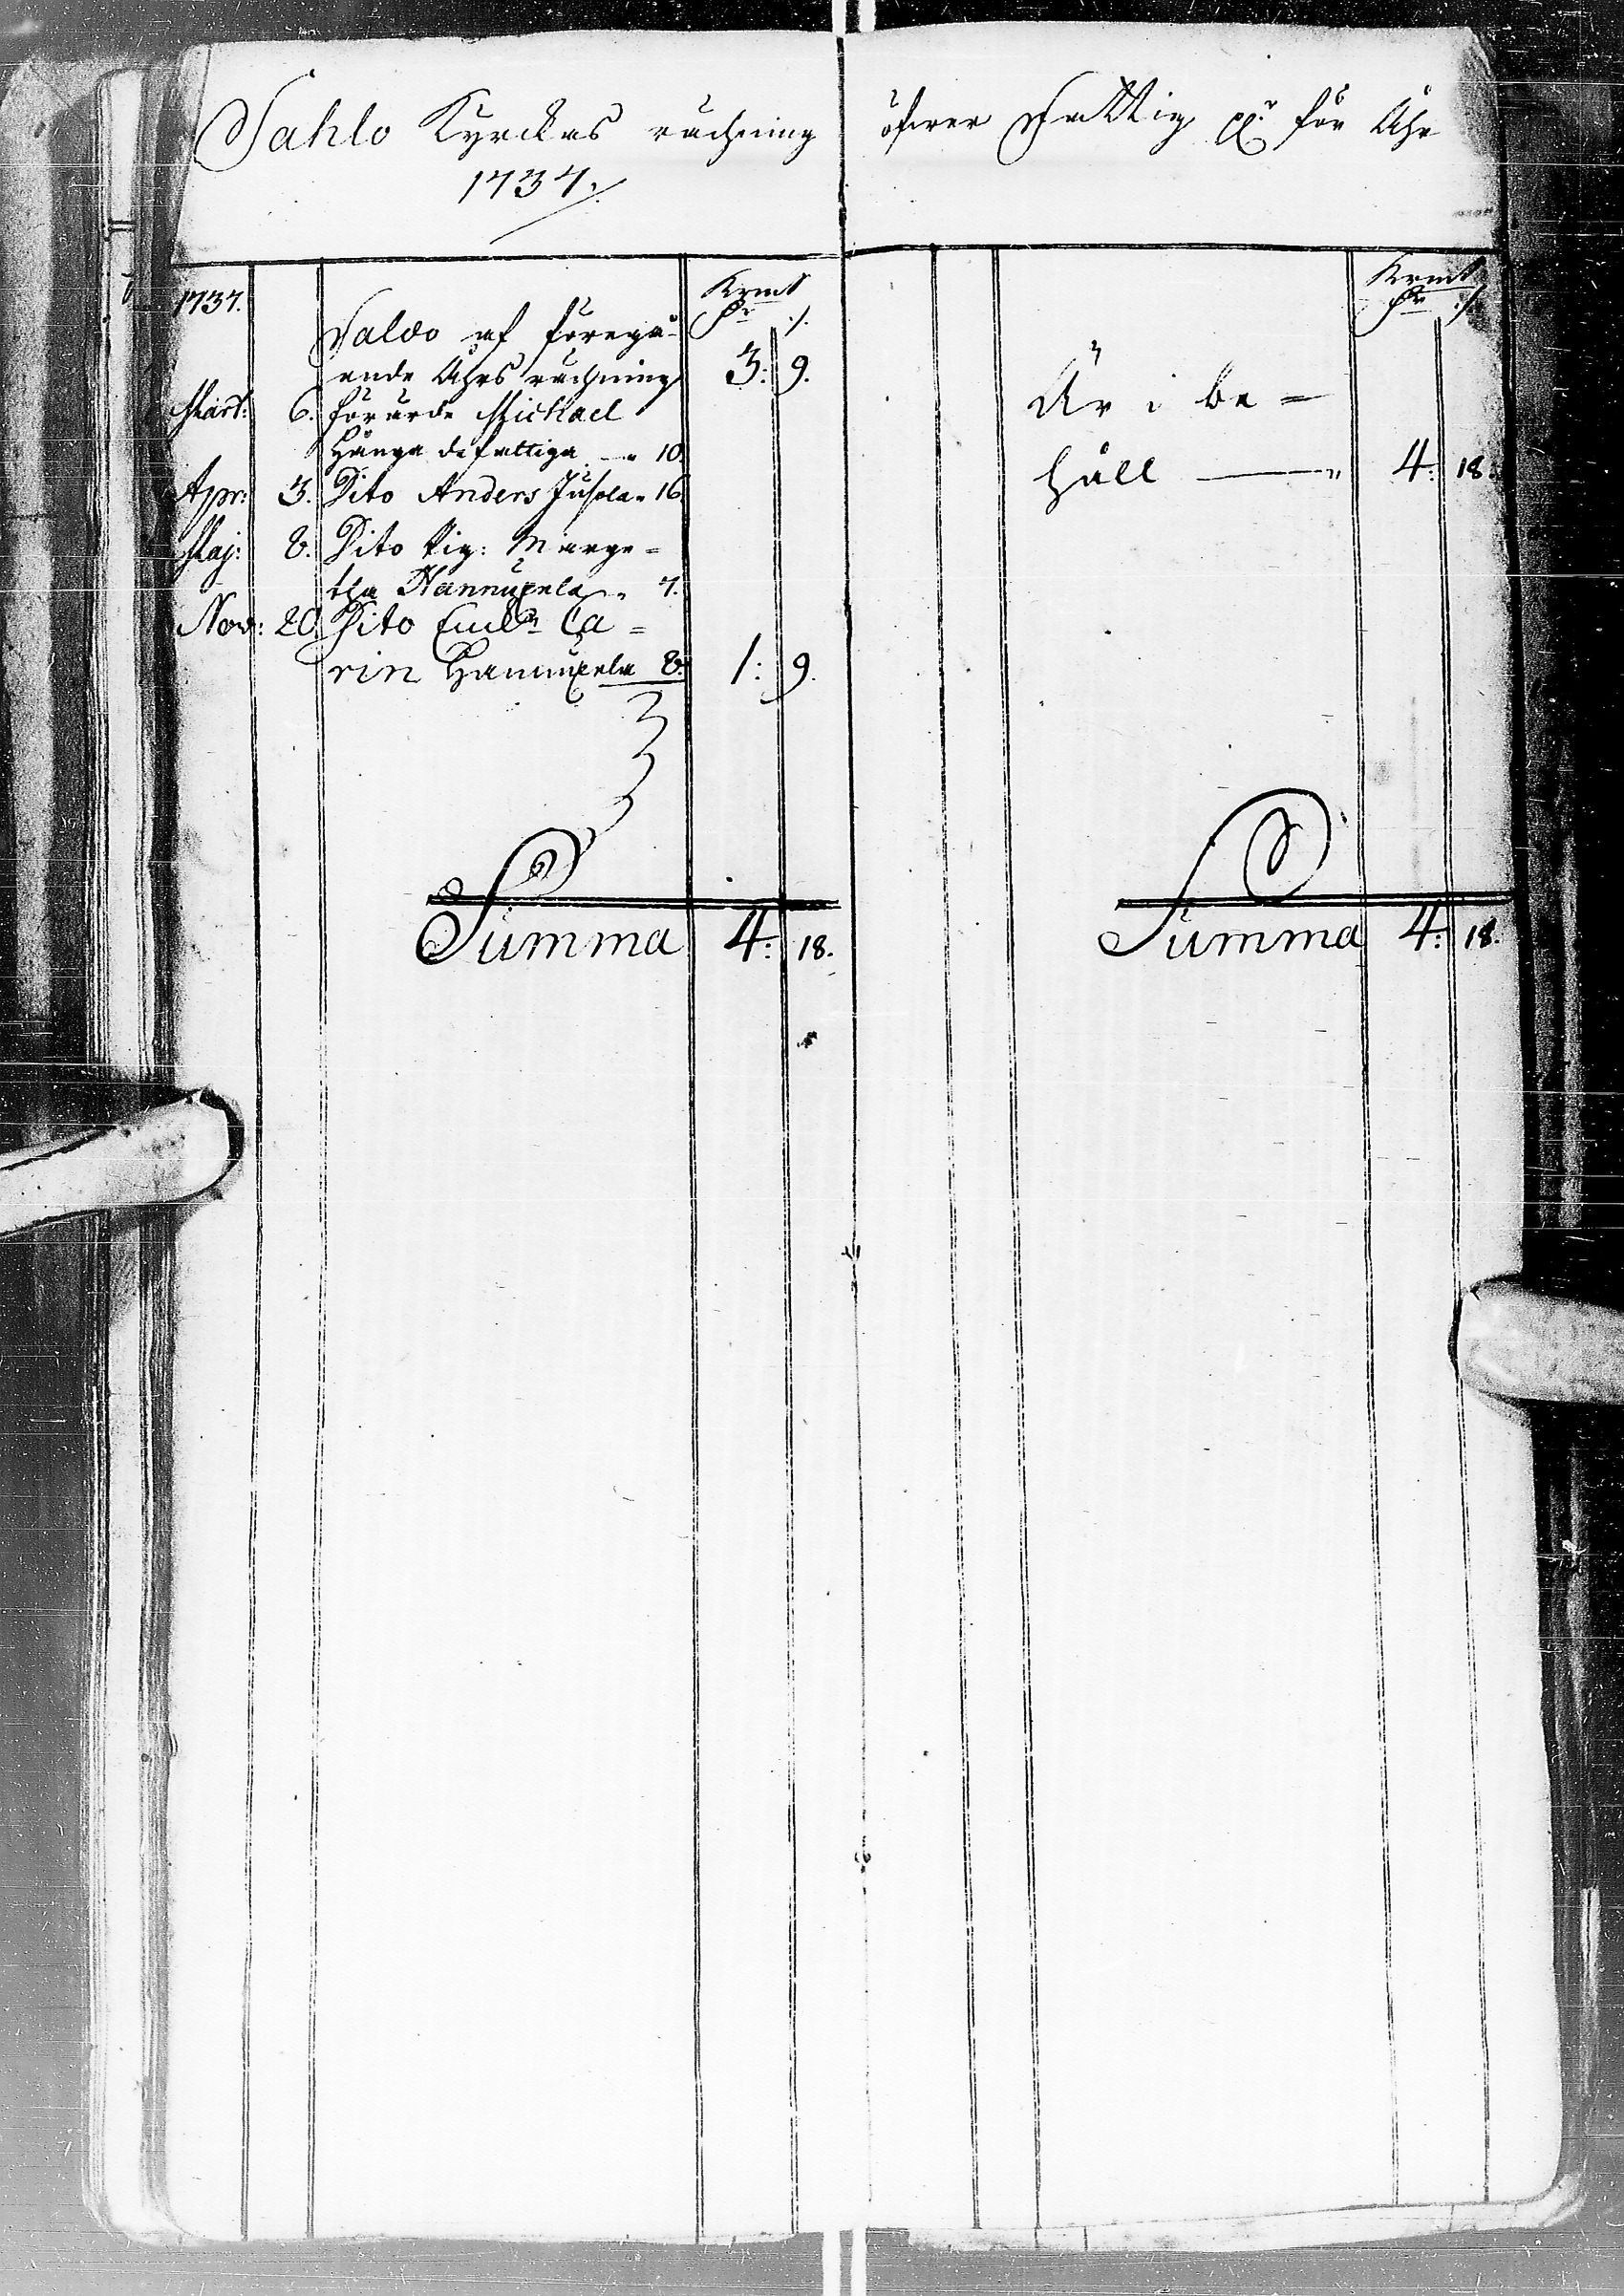 Sahlo Kyrckas rächning öfwer Fattig för Åhr
1737.
1737.
Krmt
Saldo af föregå-
ende Åhrs rächning 3: 9.
Mart: 6. förärde Michael
Hånga de fattiga — " 10.
Apr: 3. Dito Anders Jusola " 16
Maj: 8. Dito Pig: Marge=
tha Hannuxela " 7.
Nov: 20. Dito Ca=
rin Hannuxela 8. 1: 9.
Summa 4: 18.
Krmt
Är i be=
håll — " 4: 18.
Summa 4: 18.